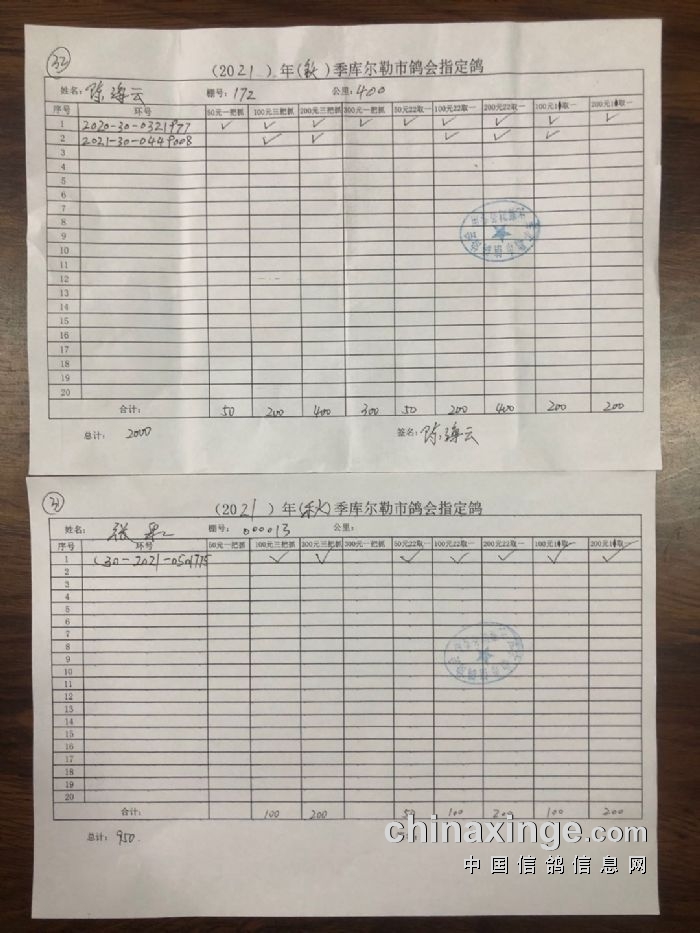 32
(2021) 年(秋)季库尔勒市鸽会指定鸽
姓名: 陈海云 棚号: 172 公里: 400
序号 环号 50元一把抓 100元三把抓 200元三把抓 300元一把抓 50元22取一 100元22取一 200元22取一 100元10取一 200元10取一
1 2020-30-0321977 ✓ ✓ ✓ ✓ ✓ ✓ ✓ ✓ ✓
2 2021-30-0449008 ✓ ✓ ✓ ✓ ✓
3
4
5
6
7
8
9
10
11
12
13
14
15
16
17
18
19
20
合计: 50 200 400 300 50 200 400 200 200
总计: 2000 签名: 陈海云
(2021) 年(秋)季库尔勒市鸽会指定鸽
姓名: 张 棚号: 000013 公里:
序号 环号 50元一把抓 100元三把抓 200元三把抓 300元一把抓 50元22取一 100元22取一 200元22取一 100元10取一 200元10取一
1 30-2021-0501775 ✓ ✓ ✓ ✓ ✓ ✓ ✓
2
3
4
5
6
7
8
9
10
11
12
13
14
15
16
17
18
19
20
合计: 100 200 50 100 200 100 200
总计: 950.
chinaxinge.com
中国信鸽信息网